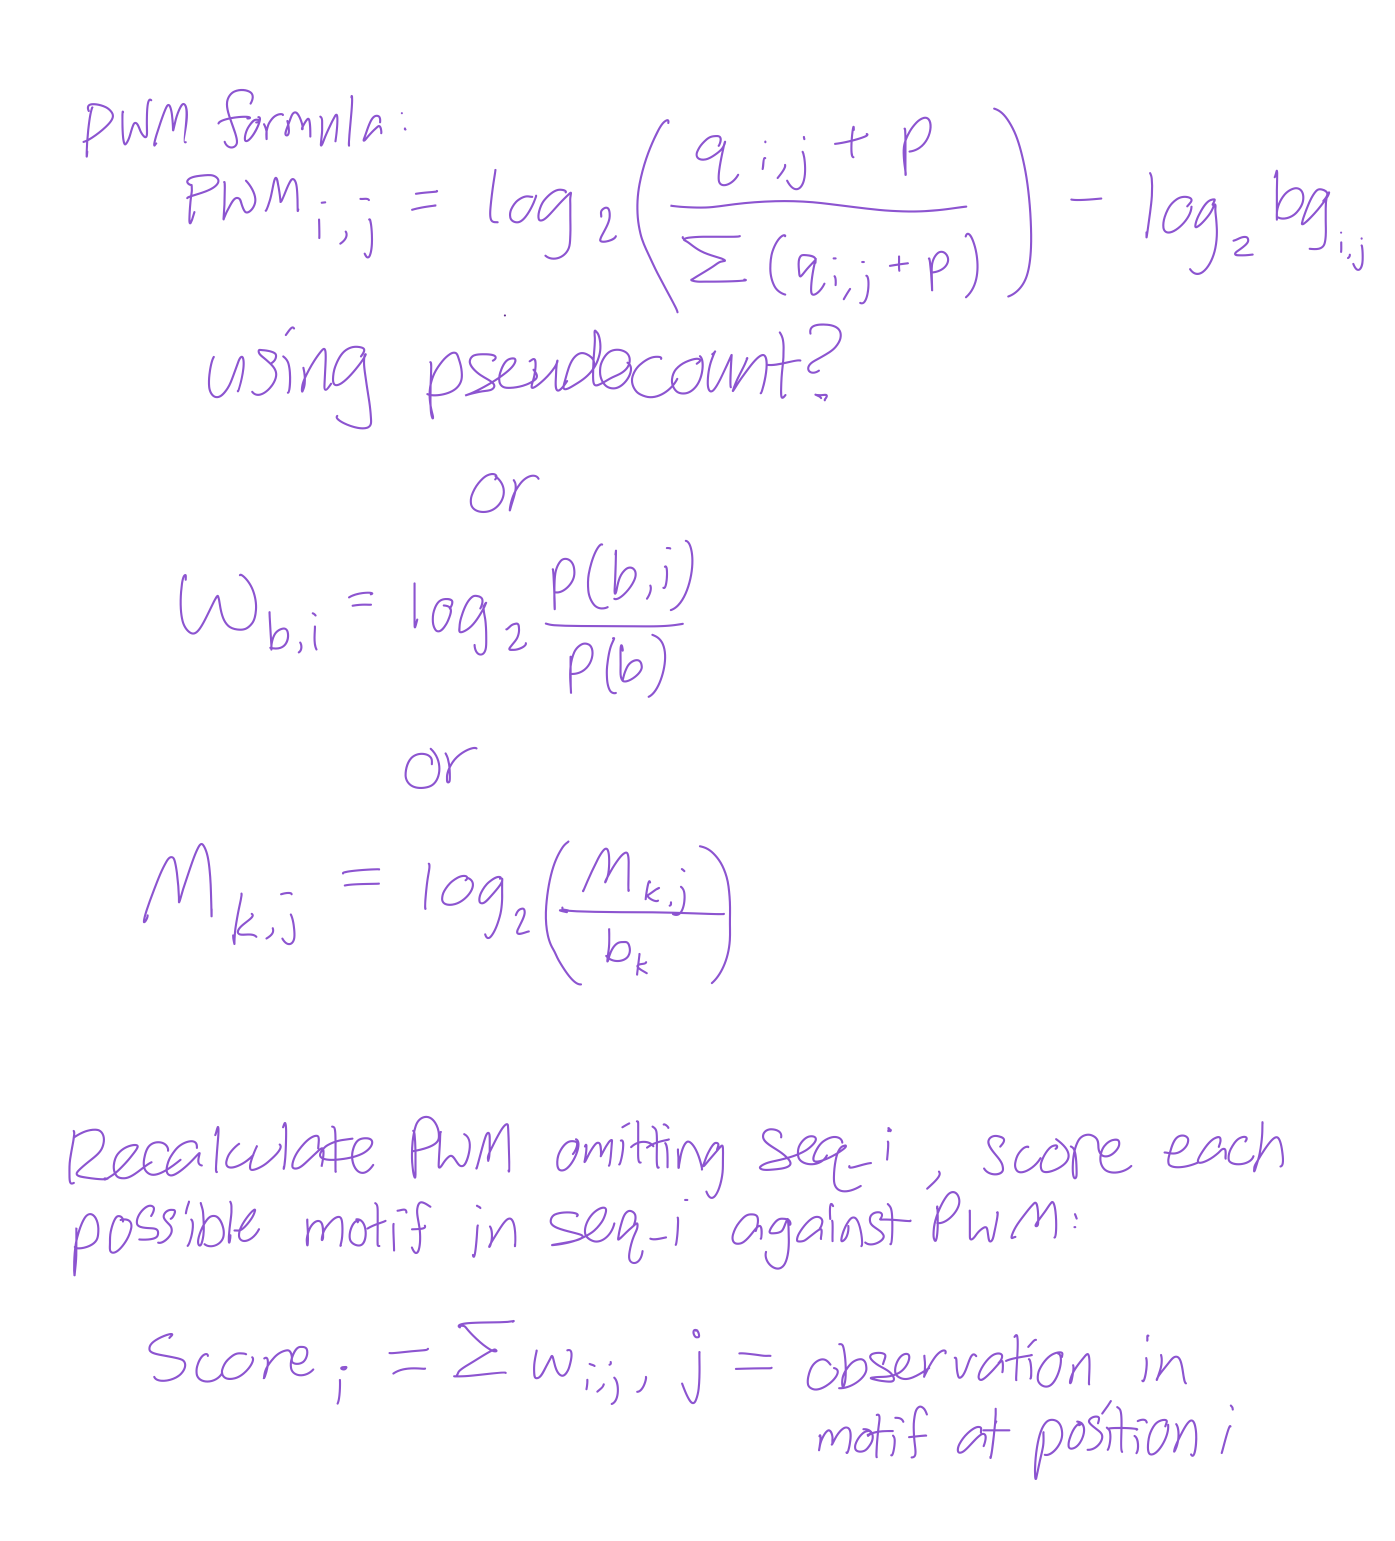 PWM formula:
PWM_{i,j} = log_2 ( (q_{i,j} + p) / (Σ (q_{i,j} + p)) ) - log_2 bg_{i,j}
using pseudocount?
or
W_{b,i} = log_2 P(b,i) / P(b)
or
M_{k,j} = log_2 ( M_{k,j} / b_k )
Recalculate PWM omitting seq_i, score each
possible motif in seq_i against PWM:
Score_i = Σ w_{i,j}, j = observation in
motif at position i